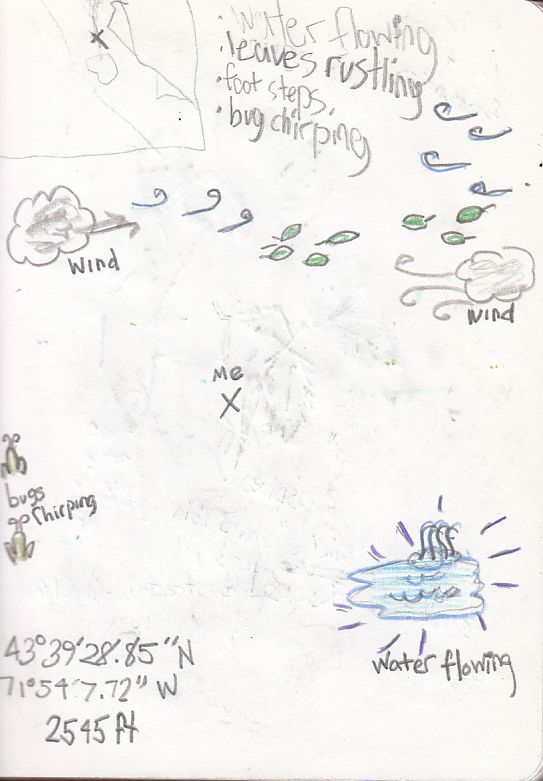 · Water flowing
· leaves rustling
· foot steps.
· bug chirping
Wind
Wind
Me
X
bugs
Chirping
43°39'28.85"N
71°54'7.72" W
2545 ft
Water flowing